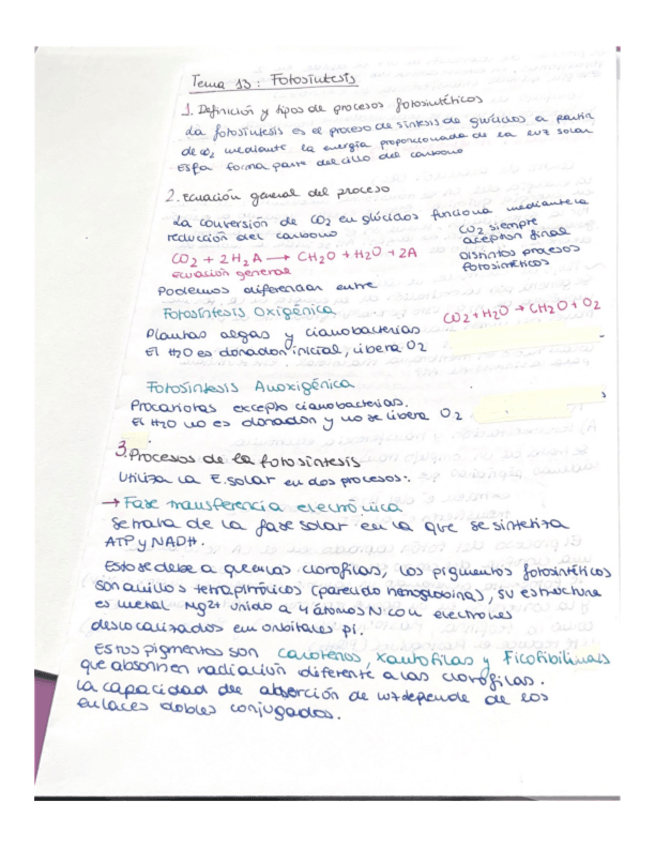 Tema 13: Fotosíntesis
1. Definición y tipos de procesos fotosintéticos
La fotosíntesis es el proceso de síntesis de glúcidos a partir
de CO2 mediante la energía proporcionada de la luz solar
Esta forma parte del ciclo del carbono
2. Ecuación general del proceso
La conversión de CO2 en glúcidos funciona mediante la
reducción del carbono
CO2 siempre
aceptor final
CO2 + 2H2A → CH2O + H2O + 2A
Ecuación general
Distintos procesos
fotosintéticos
Podemos diferenciar entre
Fotosíntesis Oxigénica
CO2 + H2O → CH2O + O2
Plantas algas y cianobacterias
El H2O es donador inicial, libera O2
Fotosíntesis Anoxigénica
Procariotas excepto cianobacterias.
El H2O no es donador y no se libera O2
3. Procesos de la fotosíntesis
Utiliza la E. solar en dos procesos:
→ Fase transferencia electrónica
Se trata de la fase solar en la que se sintetiza
ATP y NADH.
Esto se debe a que las clorofilas, los pigmentos fotosintéticos
son anillos tetrapirrólicos (parecido hemoglobina), su estructura
es metal Mg2+ unido a 4 átomos N con electrones
deslocalizados en orbitales pi.
Estos pigmentos son carotenos, xantofilas y Ficobilinas
que absorben radiación diferente a las clorofilas.
La capacidad de absorción de luz depende de los
enlaces dobles conjugados.